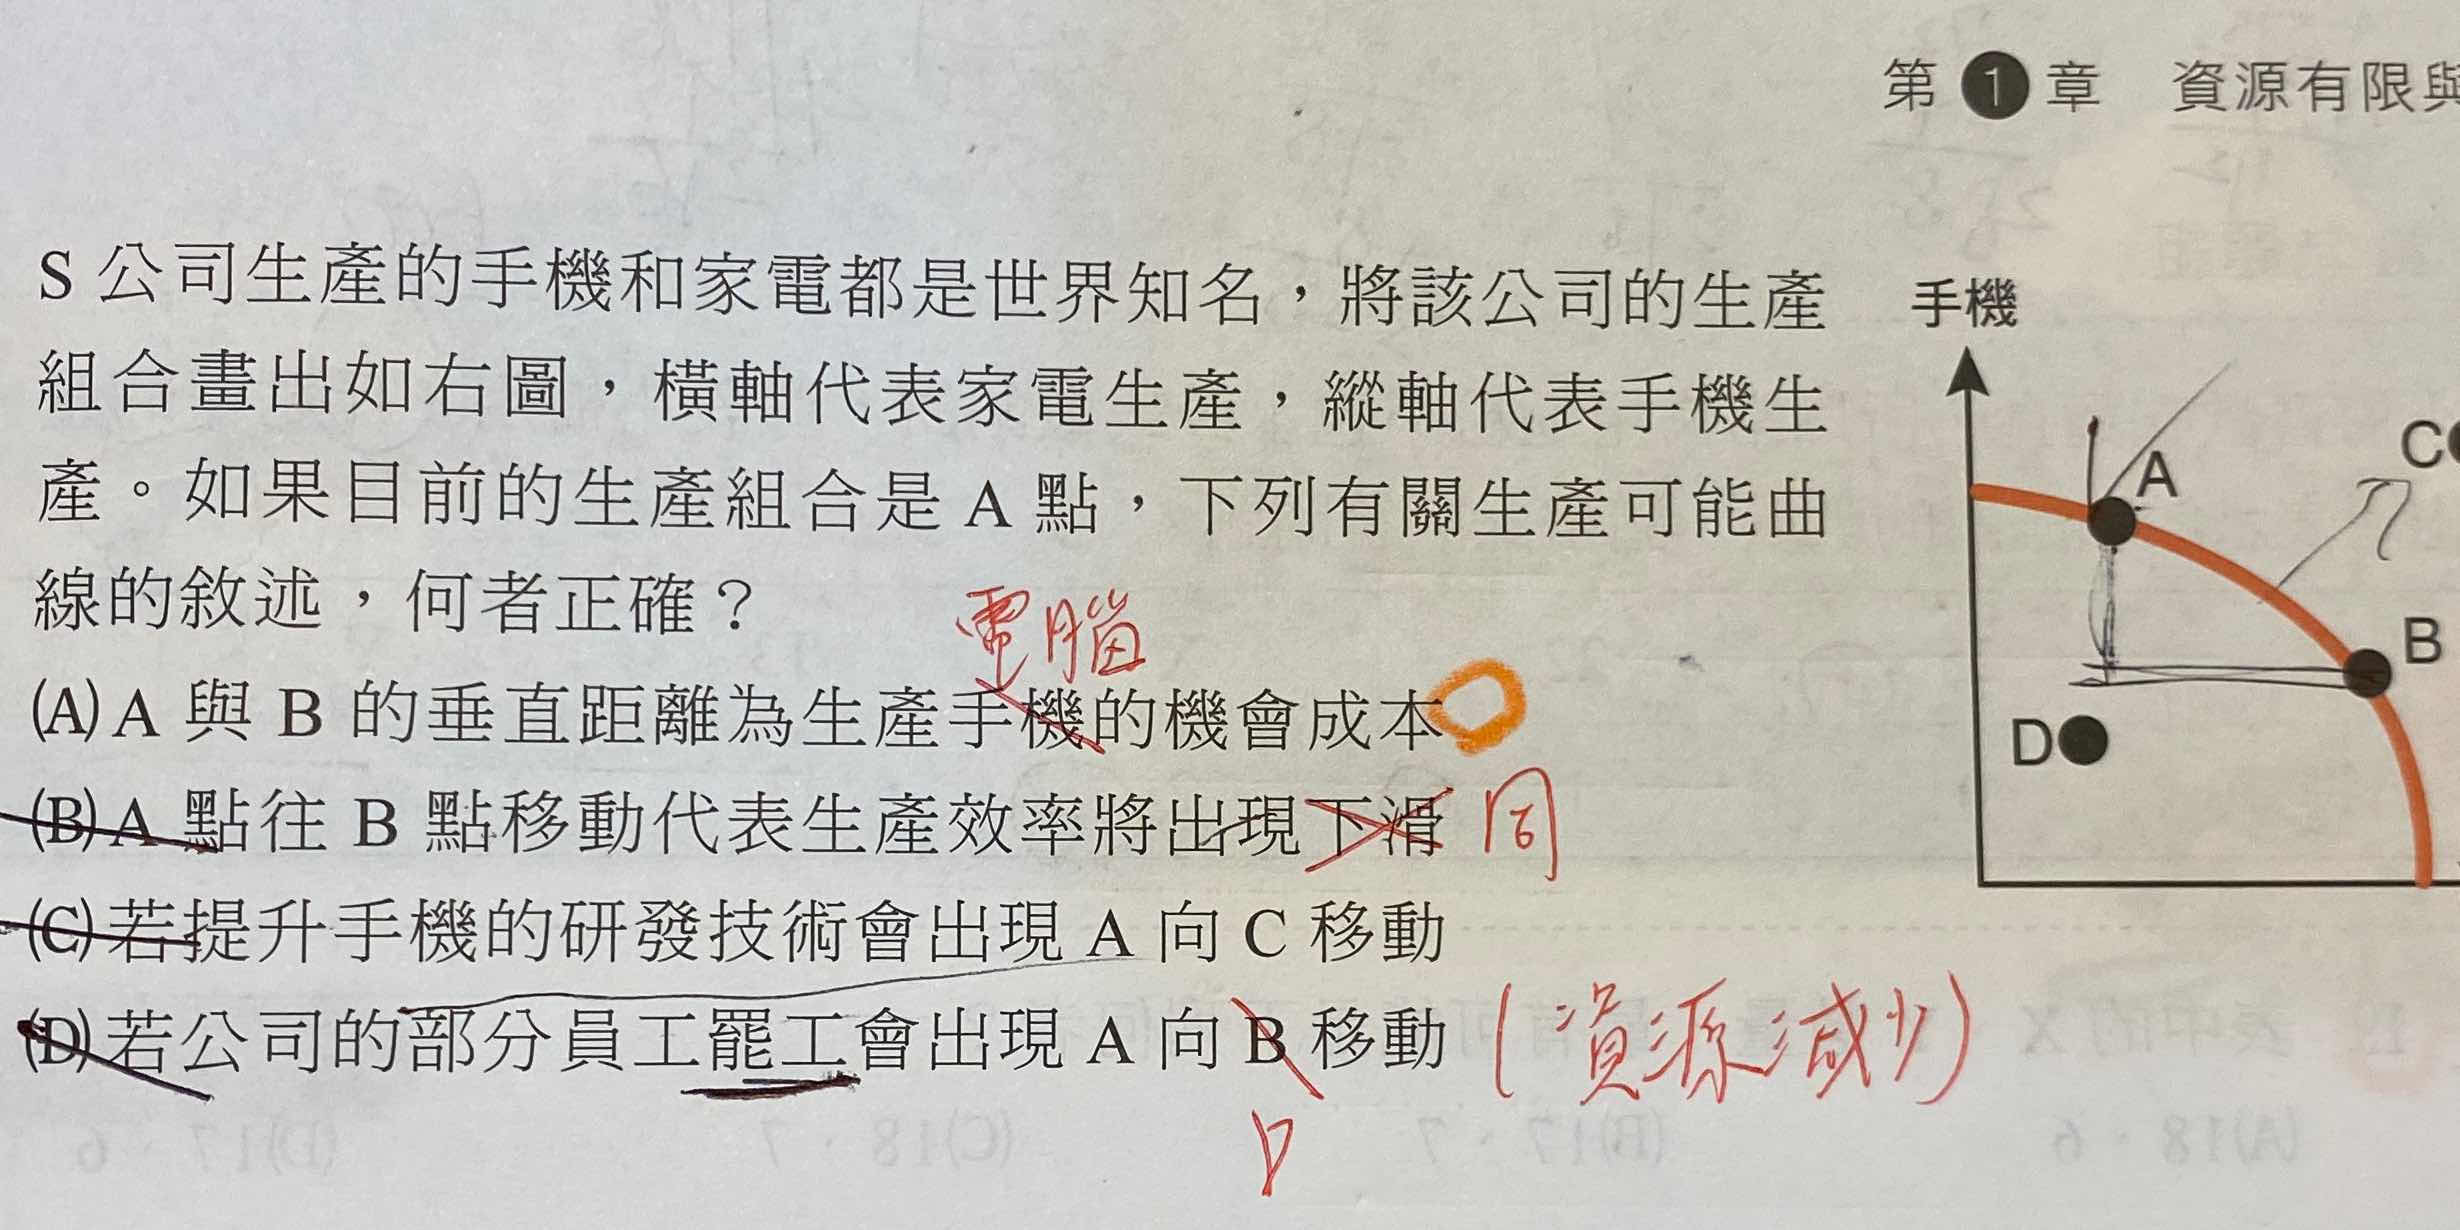 第1章 資源有限與
S公司生產的手機和家電都是世界知名，將該公司的生產
組合畫出如右圖，橫軸代表家電生產，縱軸代表手機生
產。如果目前的生產組合是A點，下列有關生產可能曲
線的敘述，何者正確？
電腦
(A)A與B的垂直距離為生產手機的機會成本
(B)A點往B點移動代表生產效率將出現下滑 同
(C)若提升手機的研發技術會出現A向C移動
(D)若公司的部分員工罷工會出現A向B移動（資源減少）
D
手機
A
C
B
D